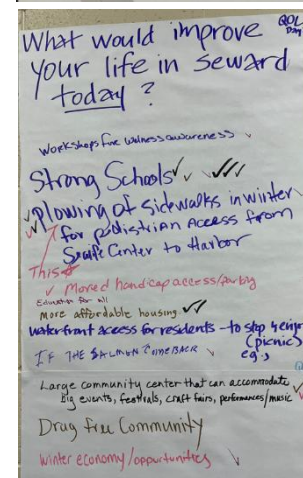 What would improve
QOL
Day
your life in Seward
today?
Workshops for welness awareness
Strong Schools
Plowing of sidewalks in winter
for pedistrian Access from
Sealife Center to Harbor
This
More handicap access/parking
Education for all
More affordable housing
waterfront access for residents - to stop & enjoy
(picnic)
eg's,
IF THE SALMON COME BACK
Large community center that can accommodate
big events, festivals, craft fairs, performances/music
Drug free Community
Winter economy/opportunities